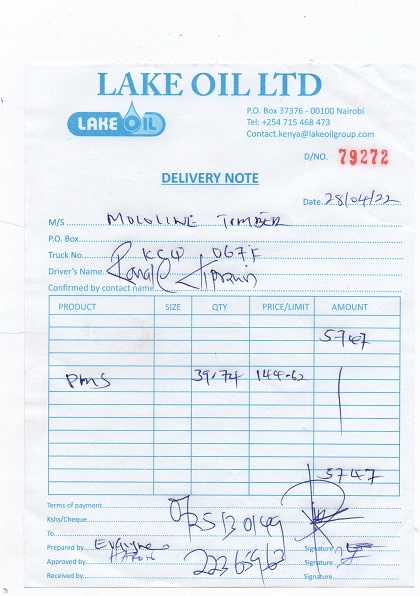 LAKE OIL LTD
LAKE OIL
P.O. Box 37376 - 00100 Nairobi
Tel: +254 715 468 473
Contact.kenya@lakeoilgroup.com
D/NO. 79272
DELIVERY NOTE
Date. 28/04/22
M/S MOLOLINE
P.O. Box
Truck No. 067F
Driver's Name.
Confirmed by contact name
PRODUCT SIZE QTY PRICE/LIMIT AMOUNT
5747
PMS 39.74 144-62
5747
Terms of payment
Kshs/Cheque
To
Prepared by Signature
Approved by Signature
Received by Signature